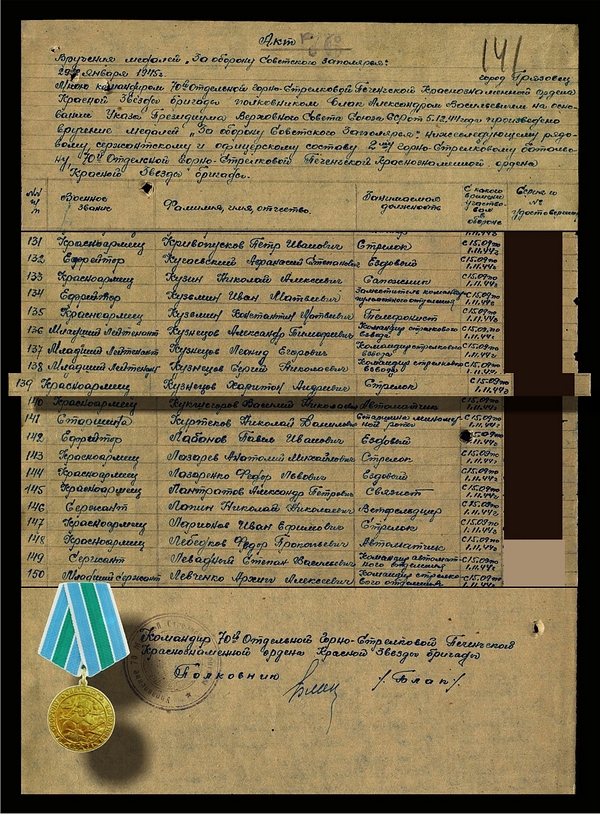 Акт
141
Вручения медалей „За оборону Советского заполярья".
29го января 1945г. город Грязовец
Мною командиром 70й Отдельной горно-Стрелковой Печенгской Краснознаменной ордена
Красной Звезды бригады полковником Блак Александром Васильевичем на осно-
вании Указа Президиума Верховного Совета Союза ССР от 5.12.44 года произведено
вручение медалей „За оборону Советского Заполярья" нижеследующему рядо-
вому, сержантскому и офицерскому составу 2 му Горно-Стрелковому батальо-
ну, 70й Отдельной Горно-Стрелковой Печенгской Краснознаменной ордена
Красной Звезды бригады.
№№ п/п Военное звание Фамилия, имя, отчество. Занимаемая должность С какого времени участво-вал в обороне Серия и № удостоверения
1.11.44г
131 Красноармеец Кривопусков Петр Иванович Стрелок С 15.09 по 1.11.44г
132 Ефрейтор Кугаевский Афанасий Степанович Ездовой С 15.09 по 1.11.44г
133 Красноармеец Кузин Николай Алексеевич С 15.09 по 1.11.44г
134 Ефрейтор Кузьмин Иван Матвеевич Заместитель командира пулеметного отделения С 15.09 по 1.11.44г
135 Красноармеец Кузьмин Константин Матвеевич Телефонист С 15.09 по 1.11.44г
136 Младший Лейтенант Кузнецов Александр Тимофеевич Командир стрелкового взвода С 15.09 по 1.11.44г
137 Младший Лейтенант Кузнецов Леонид Егорович Командир стрелкового взвода С 15.09 по 1.11.44г
138 Младший Лейтенант Кузнецов Сергей Николаевич Командир стрелкового взвода С 15.09 по 1.11.44г
139 Красноармеец Кузнецов Харитон Андреевич Стрелок С 15.09 по 1.11.44г
140 Красноармеец Василий Николаевич Автоматчик С 15.09 по 1.11.44г
141 Старшина Куртеков Николай Данилович Старшина миномет-ной роты С 15.09 по 1.11.44г
142 Ефрейтор Лабанов Павел Иванович Ездовый 15.09 по 1.11.44г
143 Красноармеец Лазарев Анатолий Михайлович Стрелок С 15.09 по 1.11.44г
144 Красноармеец Лазаренко Федор Львович Ездовый С 15.09 по 1.11.44г
145 Красноармеец Лантратов Александр Петрович Связист С 15.09 по 1.11.44г
146 Сержант Лапин Николай Николаевич Ветфельдшер С 15.09 по 1.11.44г
147 Красноармеец Ларионов Иван Ефимович Стрелок С 15.09 по 1.11.44г
148 Красноармеец Лебедков Федор Прокопьевич Автоматчик С 15.09 по 1.11.44г
149 Сержант Левадный Степан Васильевич Командир автомат-ного отделения С 15.09 по 1.11.44г
150 Младший Сержант Левченко Архип Алексеевич Командир стрелко-вого отделения С 15.09 по 1.11.44г
Командир 70й Отдельной Горно-Стрелковой Печенгской
Краснознаменной ордена Красной Звезды бригады
Полковник /Блак/.